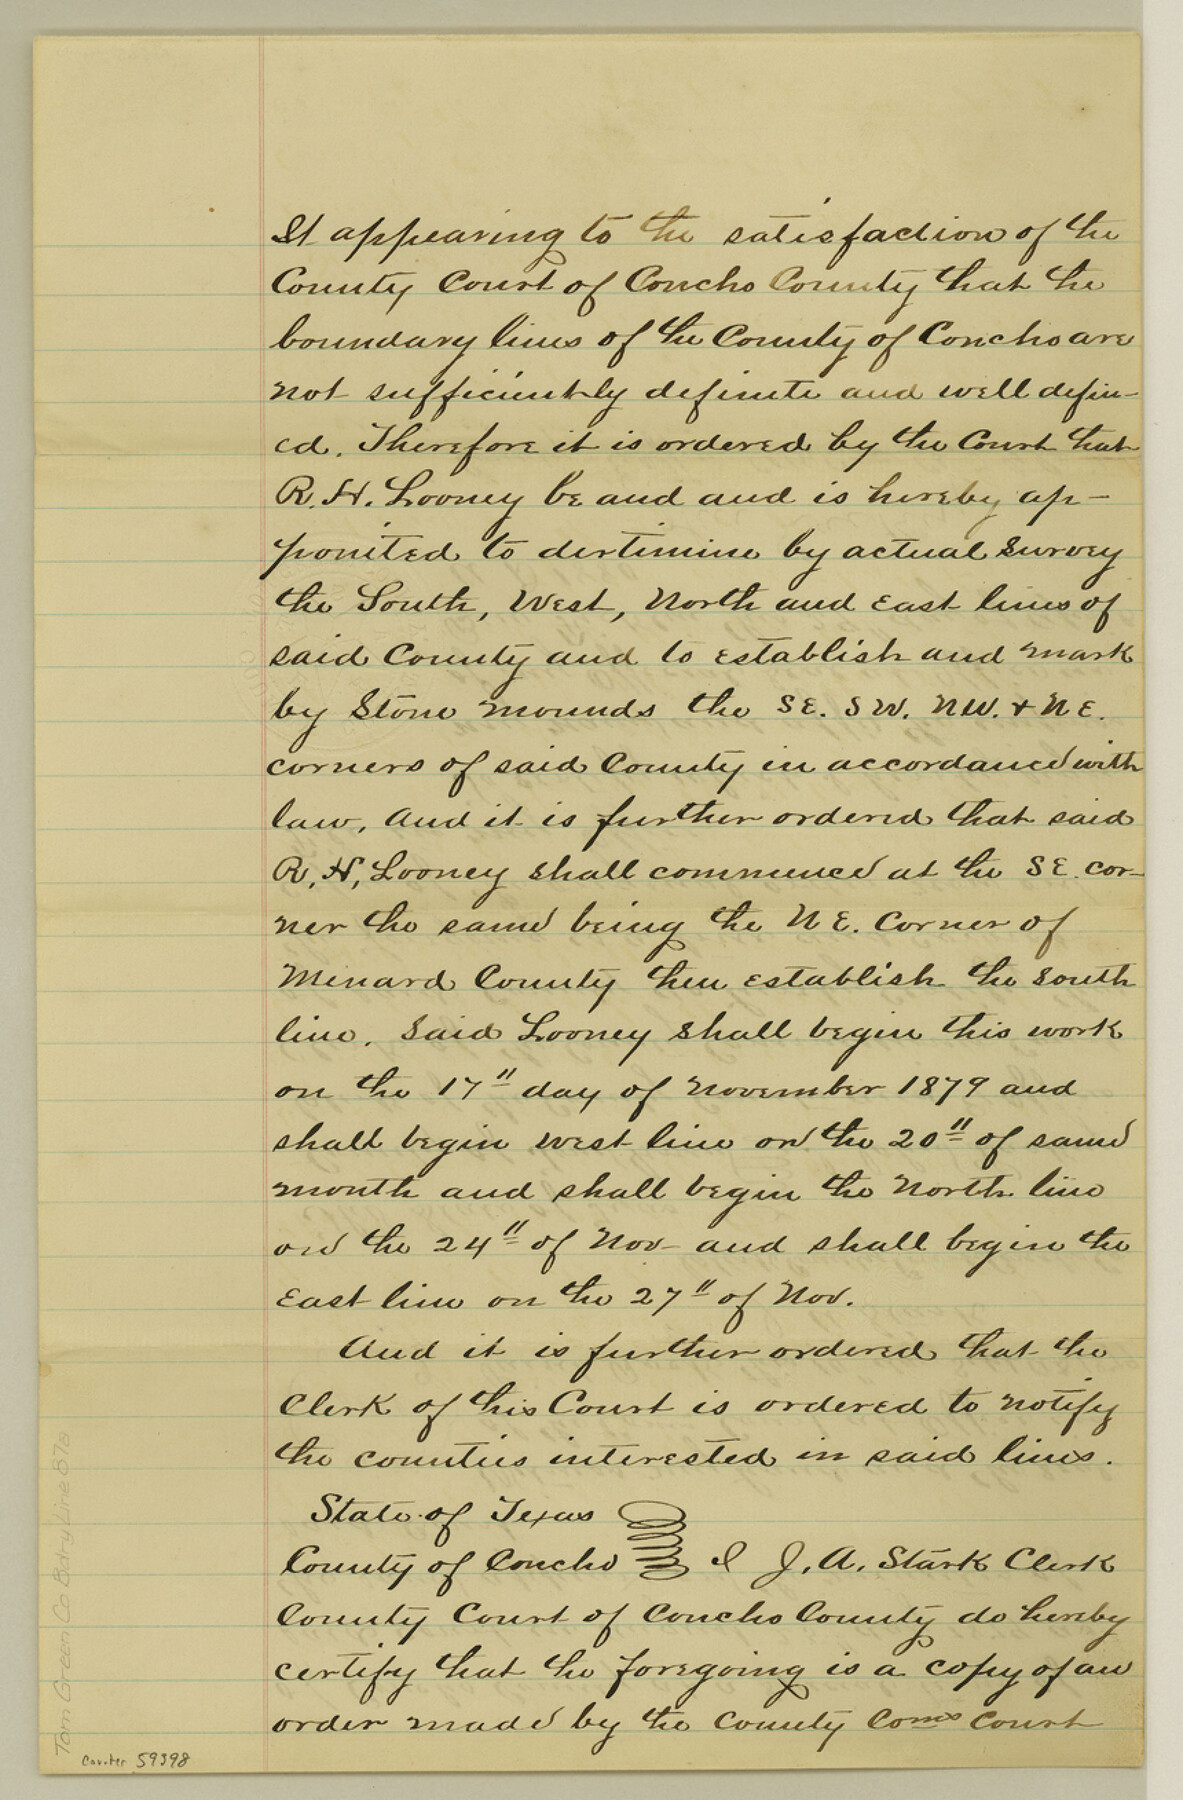 It appearing to the satisfaction of the
County Court of Concho County that the
boundary lines of the County of Concho are
not sufficiently definite and well defin-
ed. Therefore it is ordered by the Court that
R. H. Looney be and and is hereby ap-
ponited to dertimine by actual Survey
the South, West, North and East lines of
said County and to establish and mark
by Stone mounds the SE. SW. NW. & NE.
corners of said County in accordance with
law, And it is further ordered that said
R, H, Looney shall commence at the SE. cor-
ner the same being the NE. Corner of
Menard County then establish the South
line. Said Looney shall begin this work
on the 17" day of November 1879 and
shall begin west line on the 20" of same
month and shall begin the North line
on the 24" of Nov- and shall begin the
East line on the 27" of Nov.
And it is further ordered that the
Clerk of this Court is ordered to notify
the counties interested in said lines.
State of Texas
County of Concho I J. A. Stark Clerk
County Court of Concho County do hereby
certify that the foregoing is a copy of an
order made by the County Coms Court
Tom Green Co Bdry Line 87a
Counter 59398